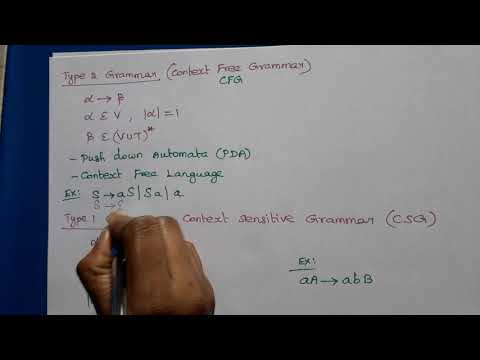 Type 2 Grammar (Context Free Grammar)
CFG
α → β
α Σ V, |α| = 1
β Σ (VUT)*
- Push down Automata (PDA)
- Context Free Language
Ex: S → aS | Sa | a
S → ε
Type 1 Context Sensitive Grammar (CSG)
Ex:
aA → abB